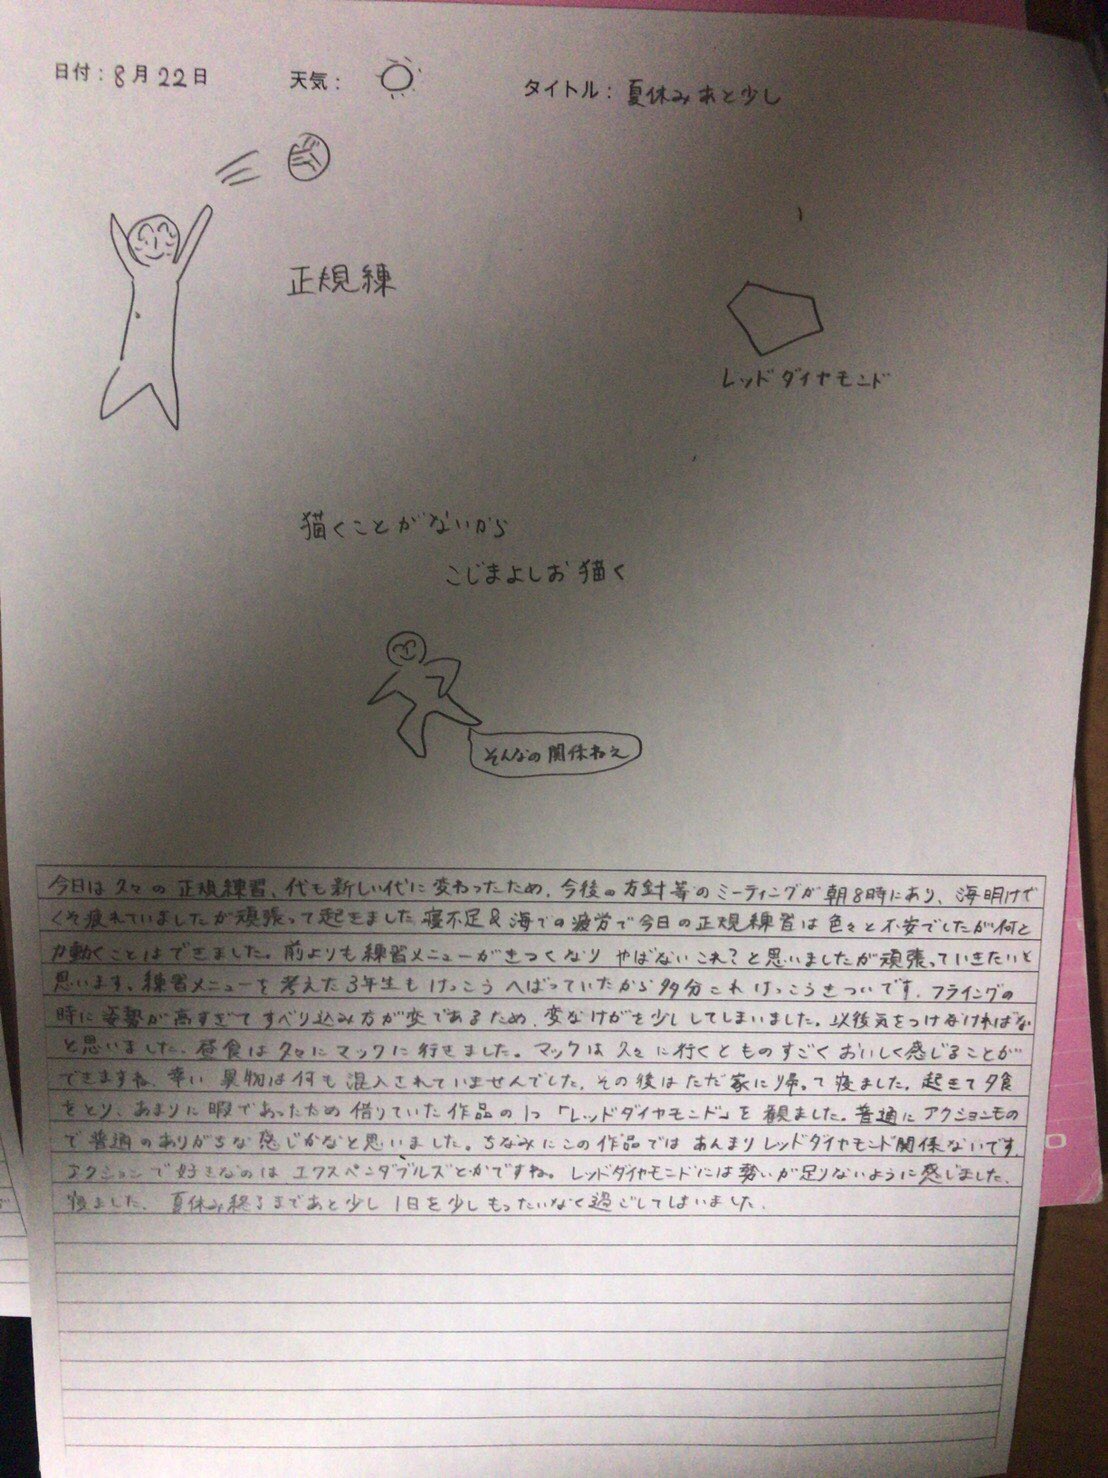 日付：8月22日 天気： タイトル：夏休みあと少し
正規練
レッドダイヤモンド
描くことがないから
こじまよしお描く
そんなの関係ねえ
今日は久々の正規練習、代も新しい代に変わったため、今後の方針等のミーティングが朝8時にあり、海明けで
くそ疲れていましたが頑張って起きました。寝不足&海での疲労で今日の正規練習は色々と不安でしたが何と
か動くことはできました。前よりも練習メニューがきつくなり やばないこれ？と思いましたが頑張っていきたいと
思います。練習メニューを考えた3年生もけっこうへばっていたから多分これけっこうきついです。フライングの
時に姿勢が高すぎてすべり込み方が変であるため、変なけがを少ししてしまいました。以後気をつけなければな
と思いました。昼食は久々にマックに行きました。マックは久々に行くとものすごくおいしく感じることが
できますね。幸い異物は何も混入されていませんでした。その後はただ家に帰って寝ました。起きて夕食
をとり、あまりに暇であったため借りていた作品の1つ「レッドダイヤモンド」を観ました。普通にアクションモノ
で普通のありがちな感じかなと思いました。ちなみにこの作品ではあんまりレッドダイヤモンド関係ないです。
アクションで好きなのはエクスペンダブルズとかですね。レッドダイヤモンドには勢いが足りないように感じました。
寝ました。夏休み終了まであと少し 1日を少しもったいなく過ごしてしまいました。